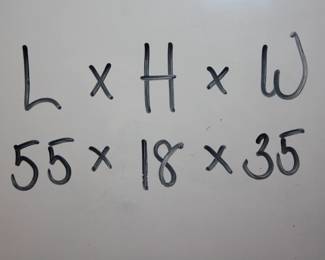 L x H x W
55 x 18 x 35